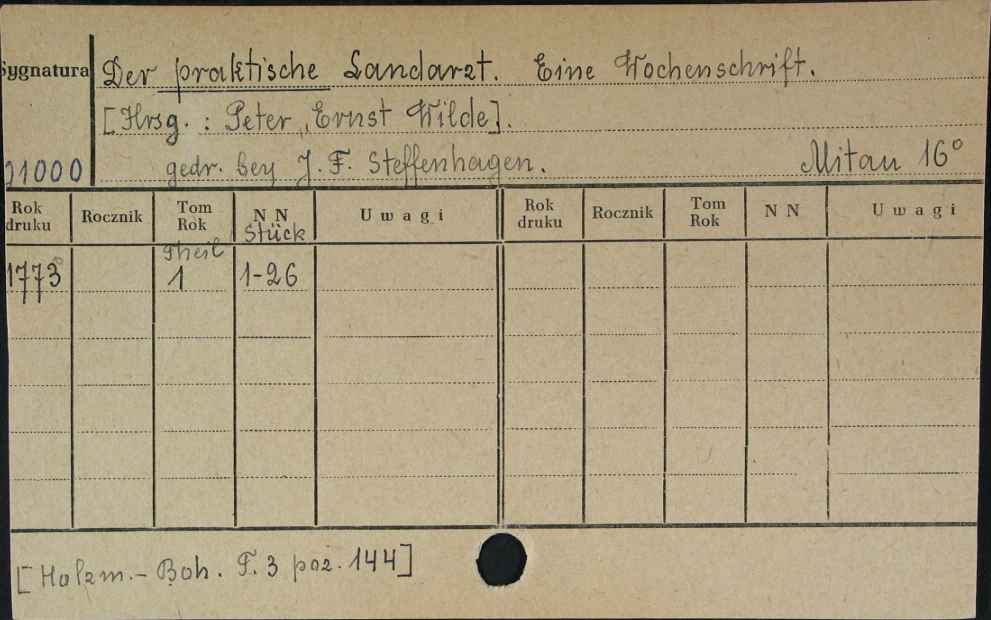 Sygnatura Der praktische Landarzt. Eine Wochenschrift.
[Hrsg. : Peter Ernst Wilde].
gedr. bey J. F. Steffenhagen. Mitau 16°
21000
Rok druku Rocznik Tom Rok NN Stück Uwagi Rok druku Rocznik Tom Rok NN Uwagi
Theil
1773 1 1-26
[Holzm.-Boh. T.3 poz. 144]